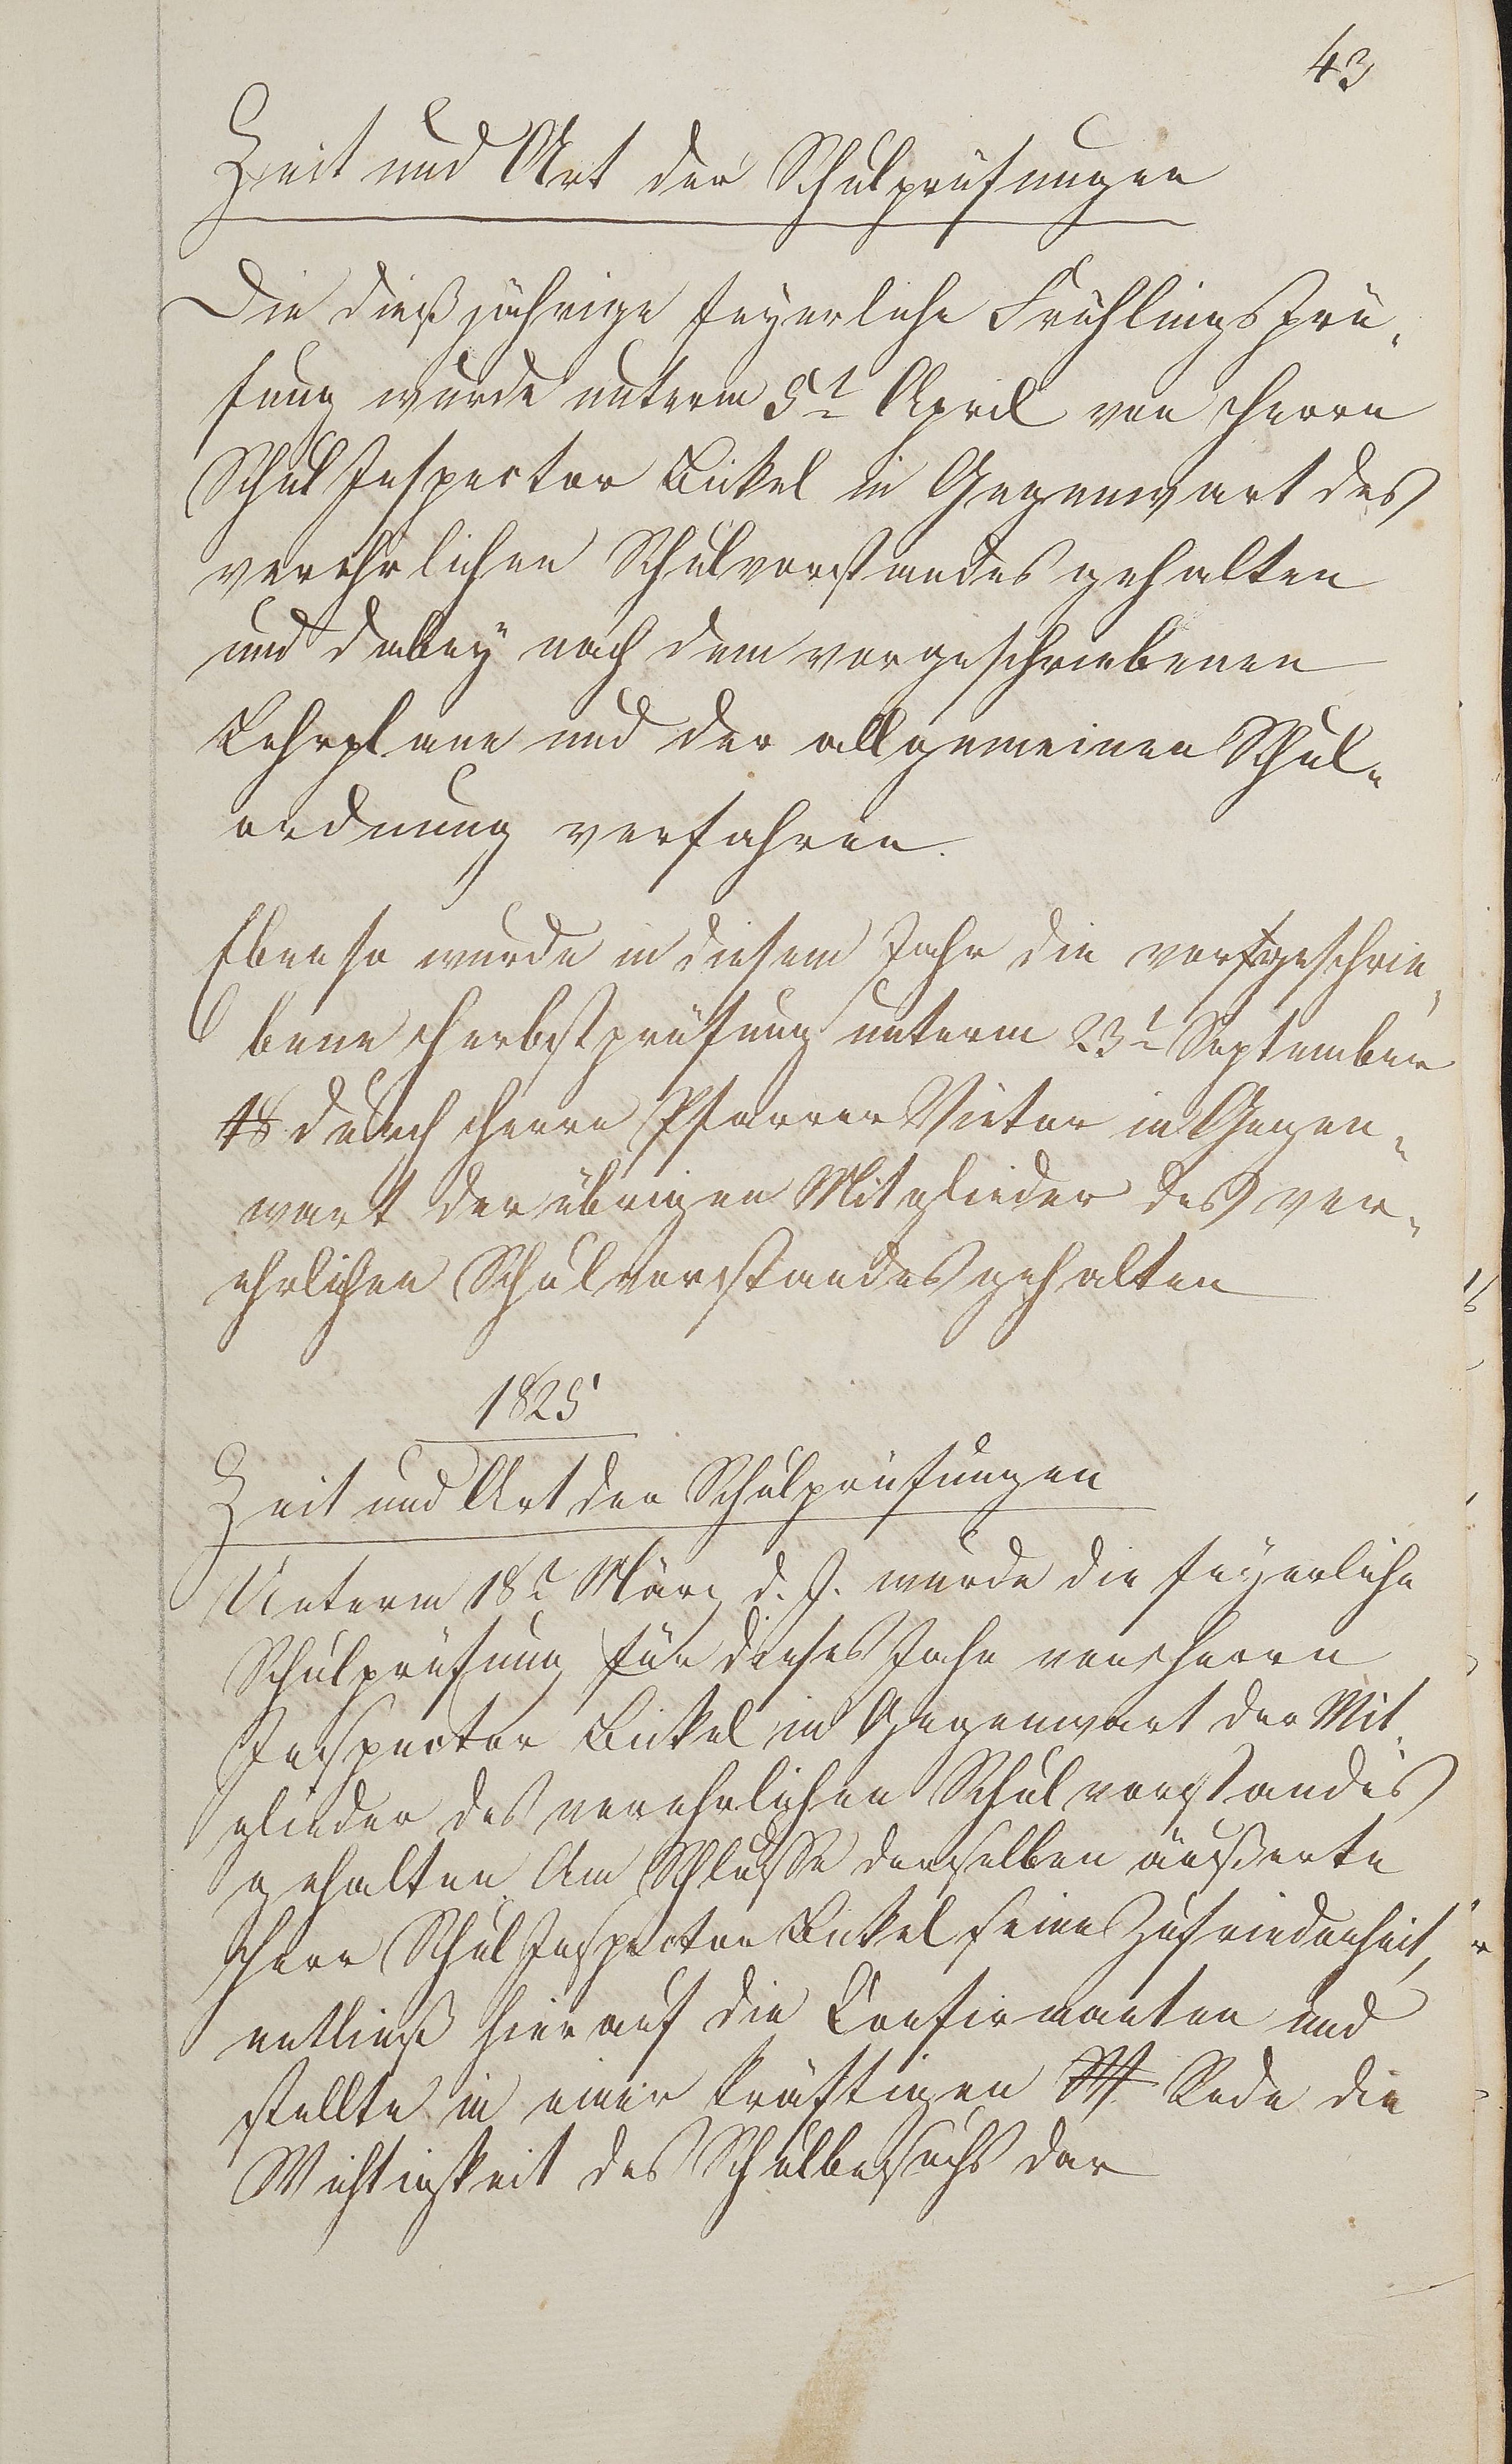 43
Zeit und Art der Schulprüfungen
Die dießjährige feyerliche Frühlingsprü-
fung wurde unterm 5t April von Herrn
Schul Inspector Bickel in Gegenwart des
verehrlichen Schulvorstandes gehalten
und dabey nach dem vorgeschriebenen
Lehrplane und der allgemeinen Schul-
ordnung verfahren.
Ebenso wurde in diesem Jahr die vorgeschrie-
bene Herbstprüfung unterm 23t September
18 durch Herrn Pfarrer Vietor in Gegen-
wart der übrigen Mitglieder des ver-
ehrlichen Schulvorstandes gehalten
1825
Zeit und Art der Schulprüfungen
Unterm 18t März d. J. wurde die feyerliche
Schulprüfung für dieses Jahr von Herrn
Inspector Bickel in Gegenwart der Mit-
glieder des verehrlichen Schulvorstandes
gehalten Am Schlusse derselben äußerte
Herr Schul Inspector Bickel seine Zufriedenheit,
entließ hierauf die Confirmanten und
stellte in einer kräftigen Rede die
Wichtigkeit des Schulbesuchs dar